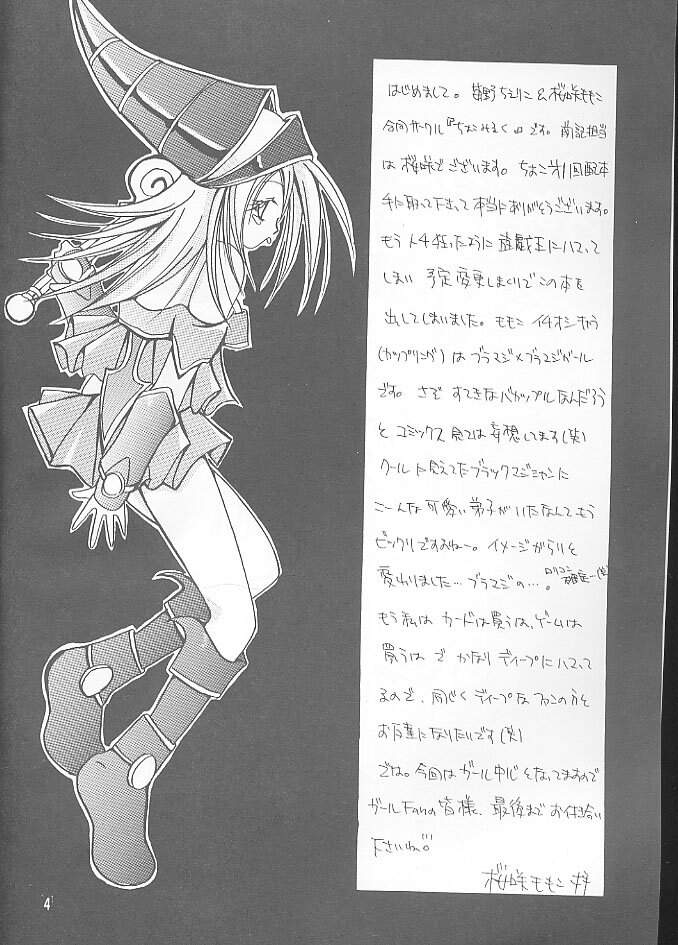 はじめまして。 野ちえりこ&桜咲ももこ
今回サークル『ちょこみるく』です。前記担当
は桜咲でございます。ちょこオ1回配本
手に取って下さって本当にありがとうございます。
もう 狂ったように遊戯王にハマって
しまい 予定変更しまくりでこの本を
出してしまいました。ももこ イチオシ
(カップリング)はブラマジ×ブラマジガール
です。さぞ すてきなバカップルなんだろう
と コミックス 妄想してます(笑)
クールに見えてたブラックマジシャンに
こーんな可愛い弟子がいたなんてもう
ビックリですよねー。イメージがらりと
変わりました…ブラマジの…。ロリコン確定ー(笑)
もう私は カードは買うは、ゲームは
買うは で かなりディープにハマって
るので、同じくディープなファンの方と
お友達になりたいです(笑)
では。今回はガール中心となってますので
ガールFanの皆様、最後までお付き合い
下さいね。
桜咲ももこ 拝
4